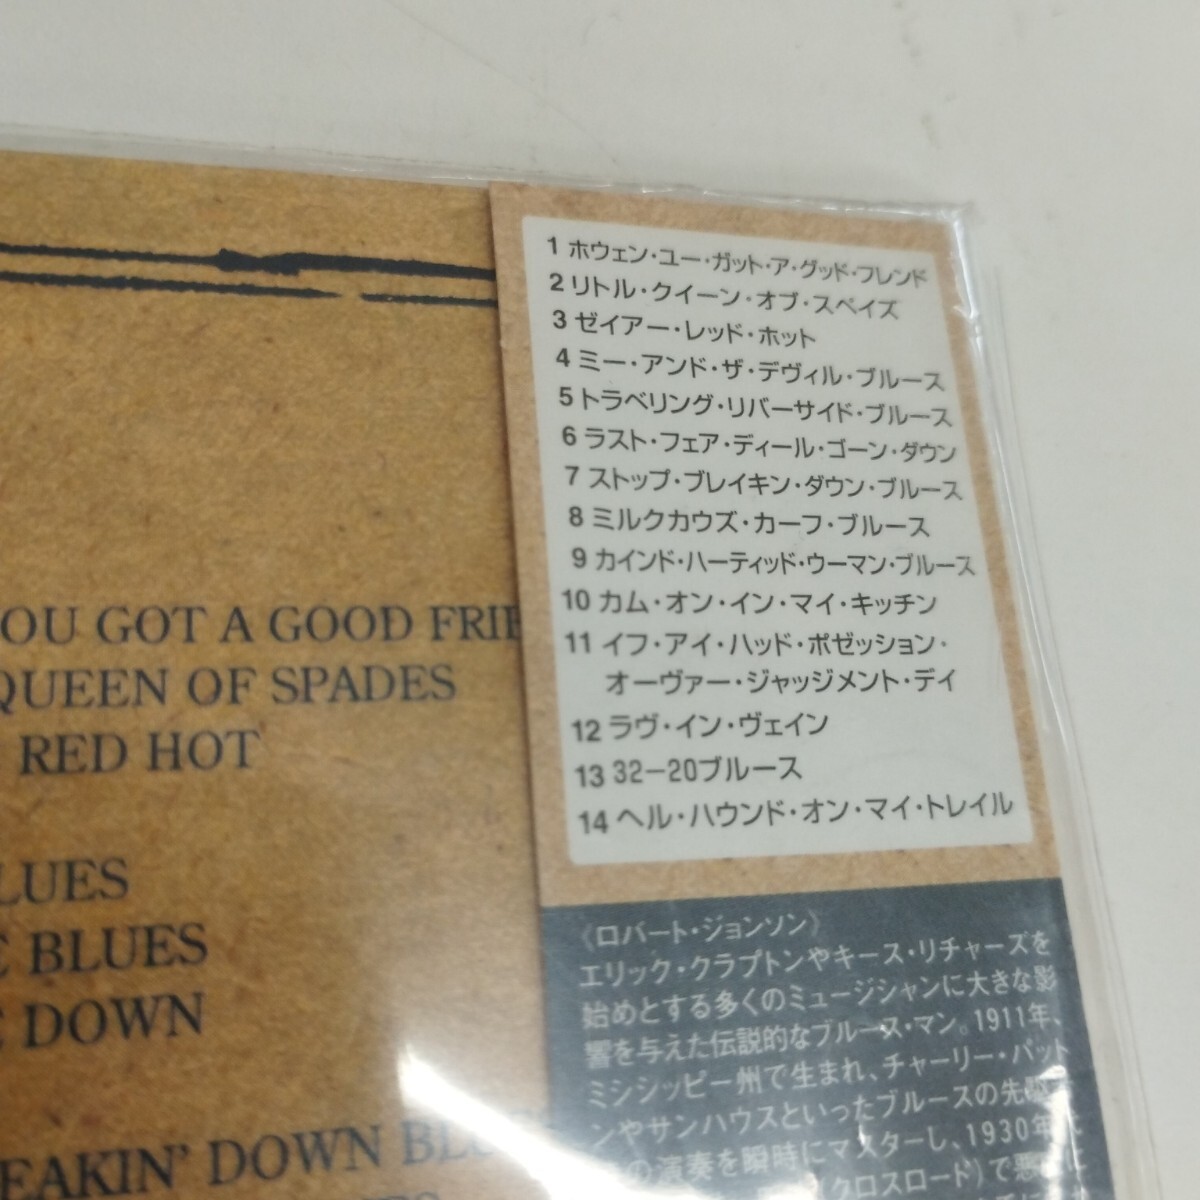 OU GOT A GOOD FRIE
QUEEN OF SPADES
RED HOT
LUES
E BLUES
E DOWN
EAKIN' DOWN
1 ホウェン・ユー・ガット・ア・グッド・フレンド
2 リトル・クイーン・オブ・スペイズ
3 ゼイアー・レッド・ホット
4 ミー・アンド・ザ・デヴィル・ブルース
5 トラベリング・リバーサイド・ブルース
6 ラスト・フェア・ディール・ゴーン・ダウン
7 ストップ・ブレイキン・ダウン・ブルース
8 ミルクカウズ・カーフ・ブルース
9 カインド・ハーティッド・ウーマン・ブルース
10 カム・オン・イン・マイ・キッチン
11 イフ・アイ・ハッド・ポゼッション・
オーヴァー・ジャッジメント・デイ
12 ラヴ・イン・ヴェイン
13 32-20ブルース
14 ヘル・ハウンド・オン・マイ・トレイル
《ロバート・ジョンソン》
エリック・クラプトンやキース・リチャーズを
始めとする多くのミュージシャンに大きな影
響を与えた伝説的なブルース・マン。1911年、
ミシシッピー州で生まれ、チャーリー・パット
ンやサンハウスといったブルースの先
の演奏を瞬時にマスターし、1930年
(クロスロード)で悪